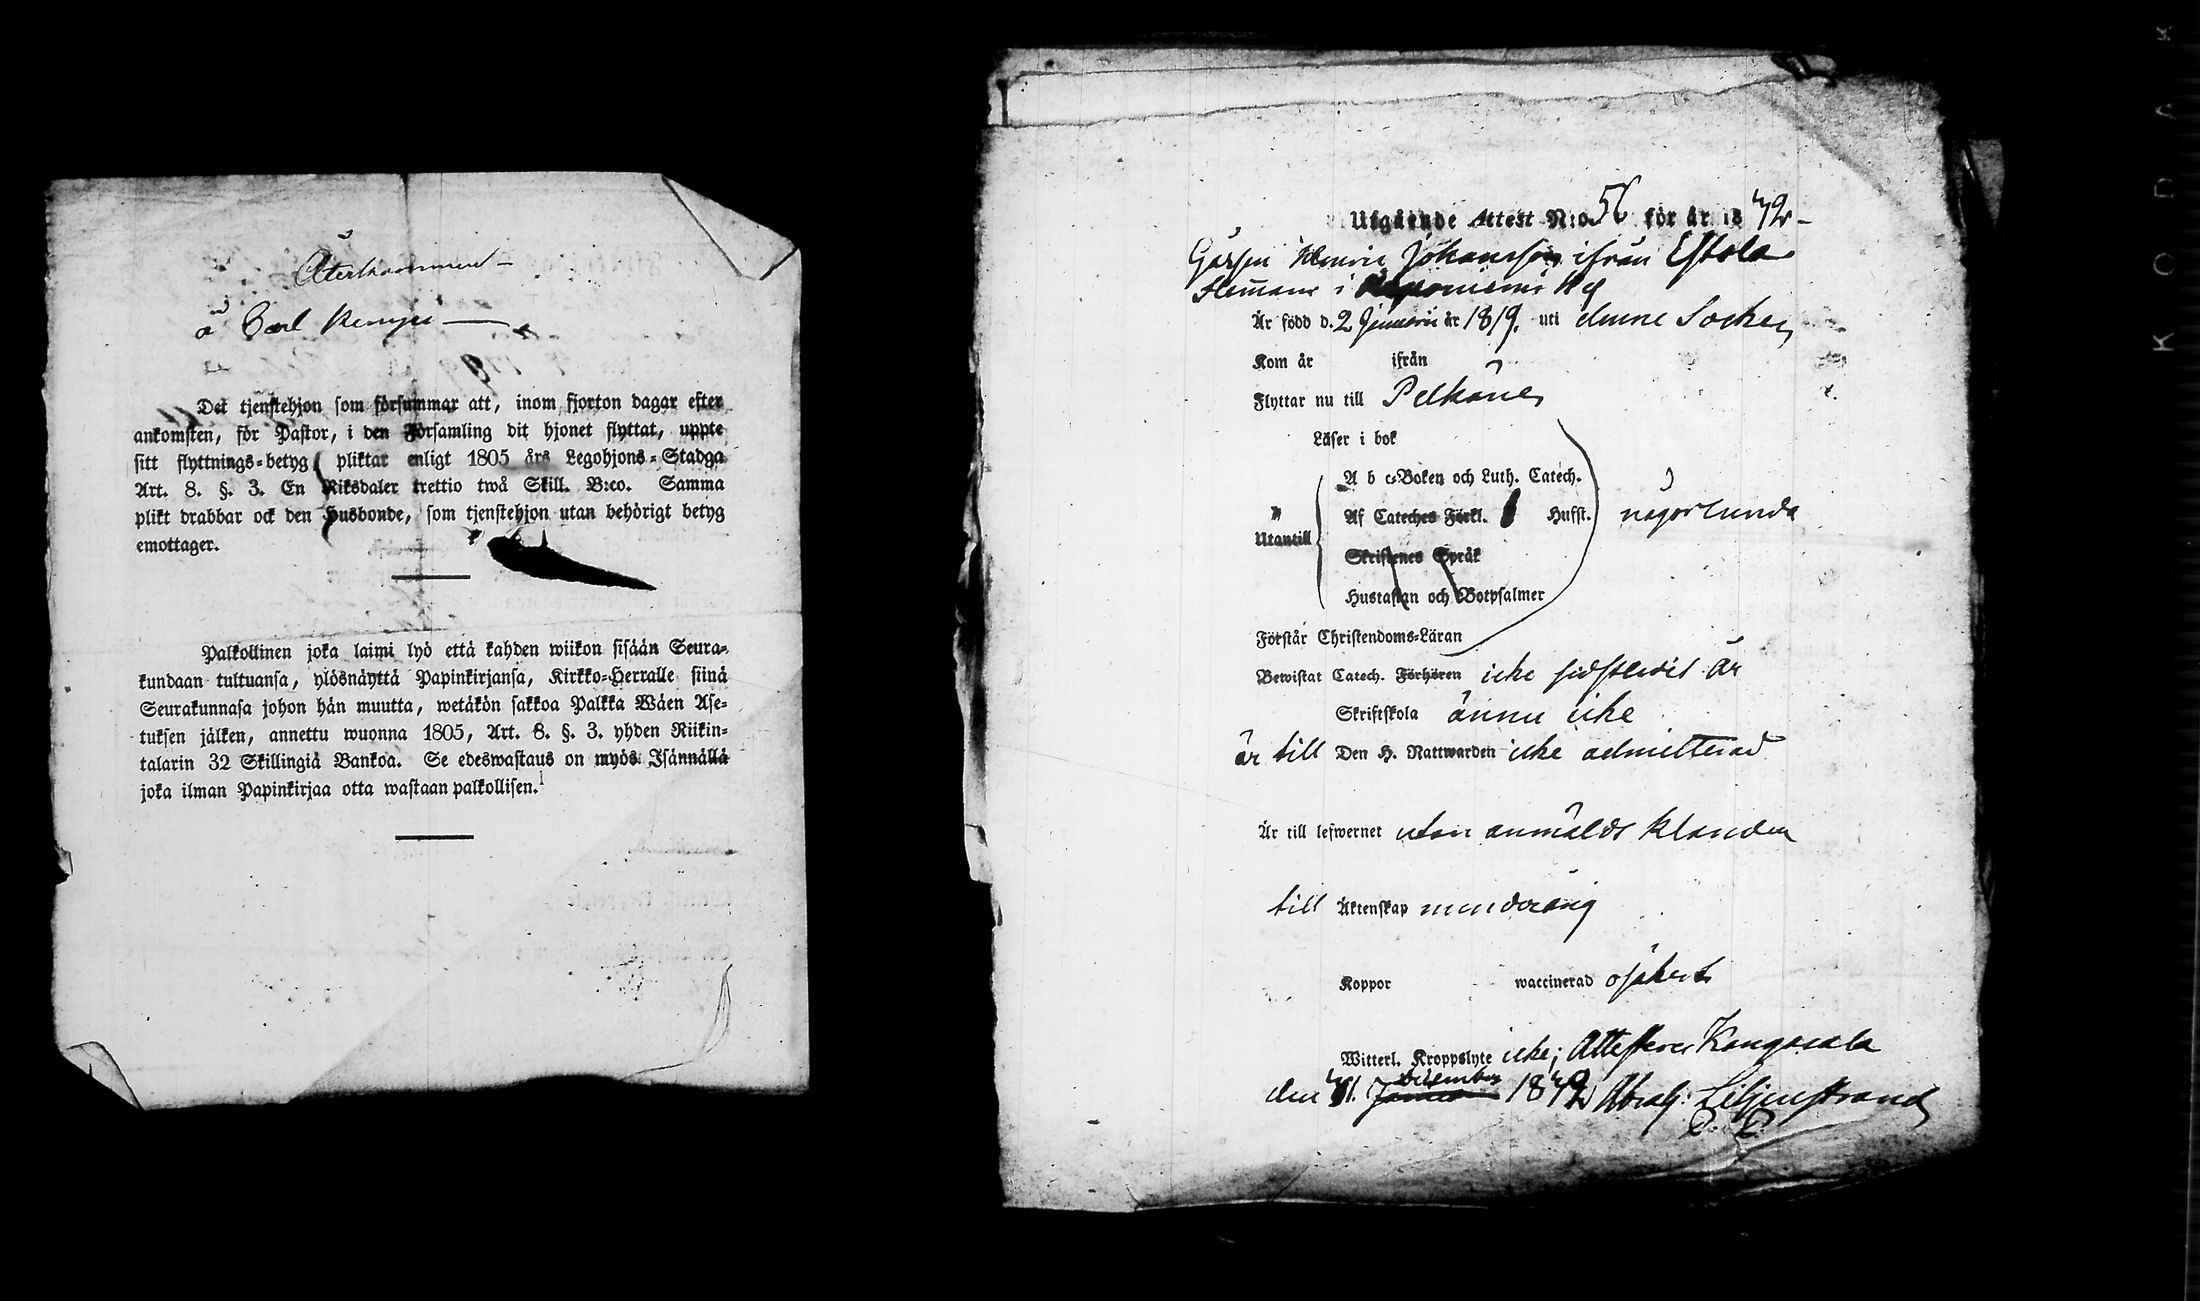 Återkommen
å Carl
Det tjenstehjon som försummar att, inom fjorton dagar efter
ankomsten, för Pastor, i den Församling dit hjonet flyttat, uppte
sitt flyttnings-betyg pliktar enligt 1805 års Legohjons-Stadga
Art. 8. §. 3. En Riksdaler trettio twå Skill. B:co. Samma
plikt drabbar ock den Husbonde, som tjenstehjon utan behörigt betyg
emottager.
Palkollinen joka laimi lyö että kahden wiikon sisään Seura-
kundaan tultuansa, ylösnäyttä Papinkirjansa, Kirkko-Herralle siinä
Seurakunnasa johon hän muutta, wetäkön sakkoa Palkka Wäen Ase-
tuksen jälken, annettu wuonna 1805, Art. 8. §. 3. yhden Riikin-
talarin 32 Skillingiä Bankoa. Se edeswastaus on myös Isännällä
joka ilman Papinkirjaa otta wastaan palkollisen.
Utgående Attest N:o 56 för år 18
Gossen Henric Johansson ifrån
i
Är född d. 2 Januarii år 1819. uti denne Socken
Kom år ifrån
Flyttar nu till Pelkäne
Läser i bok
A b c-Boken och Luth. Catech.
Utantill Af Cateches Förkl. Hufst. någorlunda
Skriftenes Språk
Hustaflan och Botpsalmer
Förstår Christendoms-Läran
Bewistat Catech. Förhören icke sidstledit år
Skriftskola ännu icke
är till Den H. Nattwarden icke admitterad
Är till lefwernet utan anmäldt klander
till Äktenskap minderårig
Koppor waccinerad osäkert
Witterl. Kroppslyte icke; Attesterar Kangasala
den December 18 Abrah: Liljenstrand
KODAK